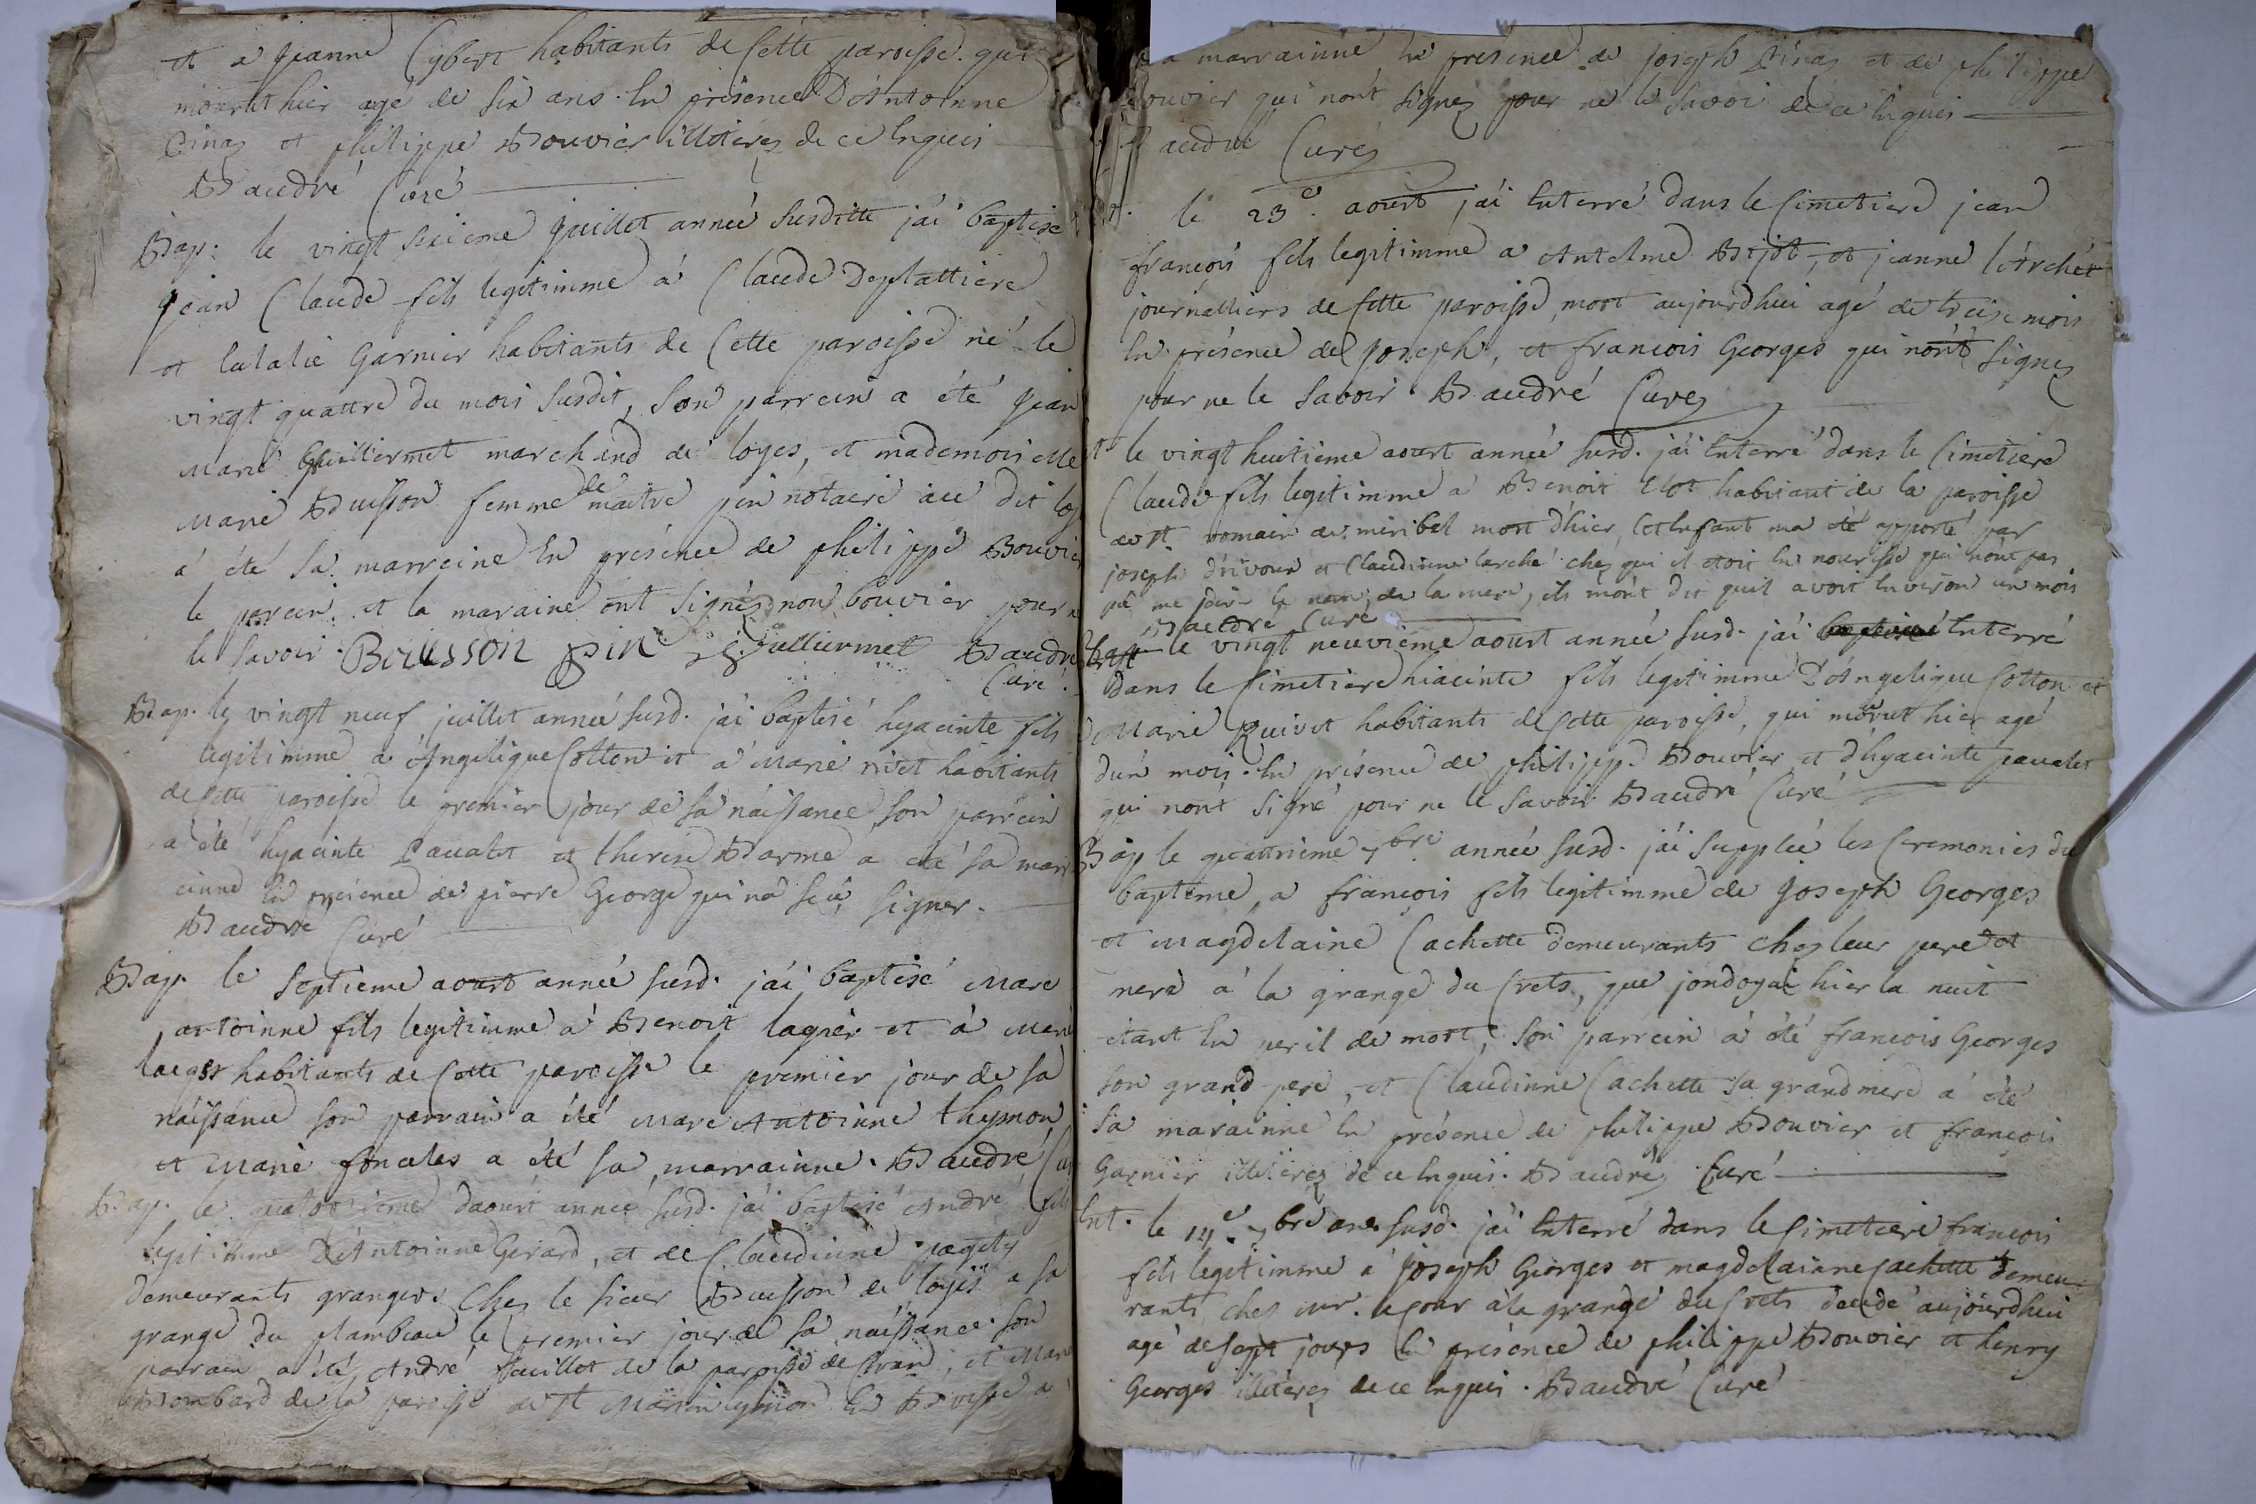 et a jeanne Cybert habitants de Cette paroisse. qui
mourut hier agé de six ans. en présence D'Antoinne
Pinaz et philippe Bouvier illiterez de ce enquis
Baudré Curé
Bap: le vingt sixieme juillet année Susditte j'ai baptisé
jean Claude fils legitimme à Claude Deplattiere
et Eulalie Garnier habitants de Cette paroisse né le
vingt quattre du mois Susdit, Son parrein a été jean
Marie Guilliermet marchand de loyes, et mademoiselle
Marie Buisson femme de maitre pin notaire au dit loyes
à été Sa marreine En présence de philippe Bouvier
le parein et la maraine ont Signés non bouvier pour ne
le Savoir. Bouesson pin Guilliermet Baudré
Curé.
Bap. le vingt neuf juillet année Susd. j'ai baptisé hyacinte fils
legitimme a Angelique Cotton et a Marie rivet habitants
de Cette paroisse le premier jour de Sa naissance, Son parrein
a été hyacinte Paualet et therese Barme a été Sa marr
einne En présence de pierre George qui na Seu Signer.
Baudré Curé
Bap. le Septieme aoust année Susd. j'ai baptisé Marc
antoinne fils legitimme à Benoit lagnier et à Marie
habitants de Cette paroisse le premier jour de sa
naissance son parrain a été Marc Antoinne thymon
et Marie a été Sa marrainne. Baudré Curé
Bap. le quatorzieme d'aoust année Susd. j'ai baptisé André fils
legitimme D'Antoinne Girard, et de Claudinne
demeurants grangers Chez le Sieur Buisson de loyes a Sa
grange du flambeau le premier jour de Sa naissance. Son
parrain a été André feuillet de la paroisse de Cran, et Marie
Bombard de la paroisse de St Martin En Bresse a
Sa marrainne En présence de joseph Pinaz et de philippe
Bouvier qui nont Signez pour ne le Savoi de ce Enquis
Baudré Curéz
Et. le 23e. aoust j'ai Enterré dans le Cimetiere jean
francois fils legitimme a Antelme Bijot, et jeanne l'Archer
journalliers de Cette paroisse, mort aujourdhui agé de treise mois
En présence de Joseph, et francois Georges qui nont Signez
pour ne le Savoir Baudré Curez
Et le vingt huitieme aoust année Susd. j'ai Enterré dans le Cimetiere
Claude fils legitimme a Benoit Clot habitant de la paroisse
de St. romain de miribel mort d'hier, Cet Enfant ma été apporté par
joseph drivour et Claudinne larché chez qui il etoit En nourisse qui nont pas
pû me Joir le nom de la mere, ils mont dit quil avoit Environ un mois
Baudré Curé
le vingt neuvieme aoust année Susd. j'ai Enterré
dans le Cimetiere hiacinte fils legitimme D'Angelique Cotton et
de Marie Ruivet habitants de Cette paroisse, qui mourut hier agé
d'un mois. En présence de philippe Bouvier et d'hyacinte paualet
qui nont Signé pour ne le Savoir Baudré Curé
Bap le quattrieme 7bre. année Susd. j'ai Supplée les Ceremonies du
baptême, a françois fils legitimme de Joseph Georges
et Magdelaine Cachette demeurants chez leur pere et
mere à la grange du Crets, que jondoyai hier la nuit
étant En peril de mort, Son parrein à été françois Georges
Son grand pere, et Claudinne Cachette Sa grand mere a été
Sa marainne En présence de philippe Bouvier et françois
Garnier illiterez de ce Enquis. Baudréz Curé
Ent. le 14e. 7bre ane. Susd. j'ai Enterré dans le Cimetiere francois
fils legitimme a Joseph Georges et magdelainne Cachette demeu=
rants chez mr. a la grange du Crets décédé aujourdhui
agé de Sept jours En présence de philippe Bouvier et henry
Georges illiterez de ce Enquis. Baudré Curé